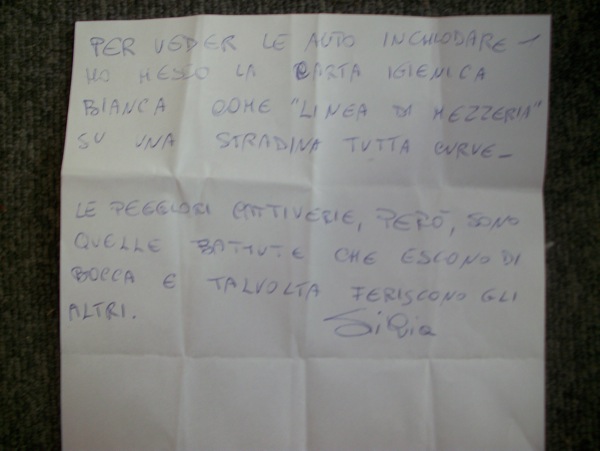 PER VEDER LE AUTO INCHIODARE -
HO MESSO LA CARTA IGIENICA
BIANCA COME "LINEA DI MEZZERIA"
SU UNA STRADINA TUTTA CURVE -
LE PEGGIORI CATTIVERIE, PERÒ, SONO
QUELLE BATTUTE CHE ESCONO DI
BOCCA E TALVOLTA FERISCONO GLI
ALTRI.
Silvia